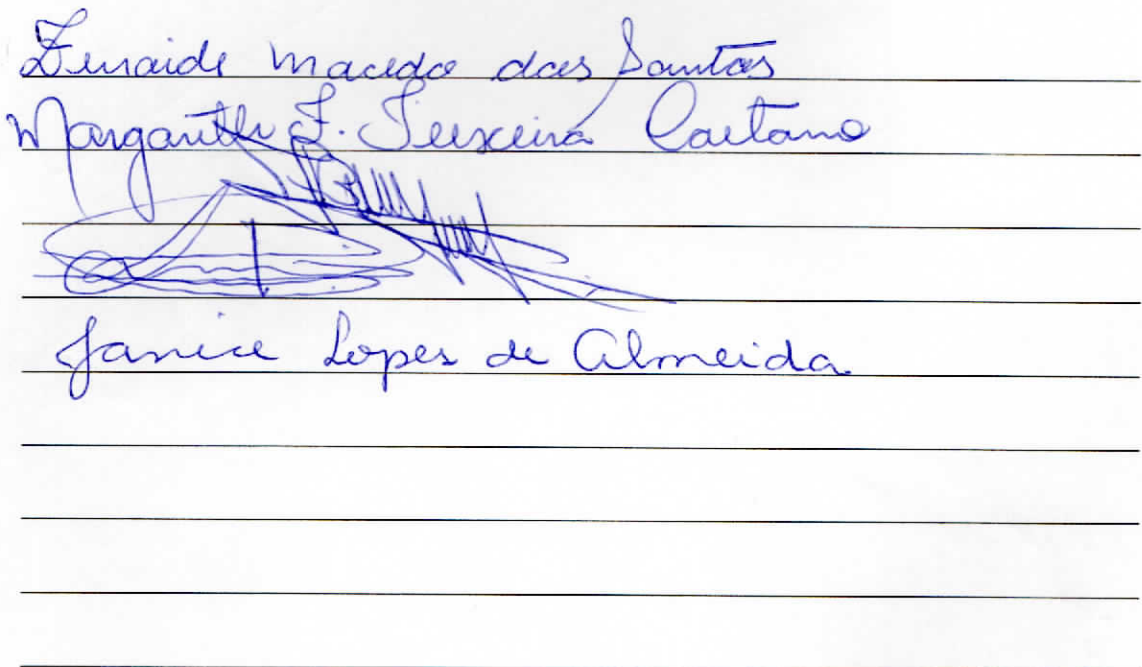 Zenaide Macedo dos Santos
Margarith F. Teixeira Caetano
Janice Lopes de Almeida